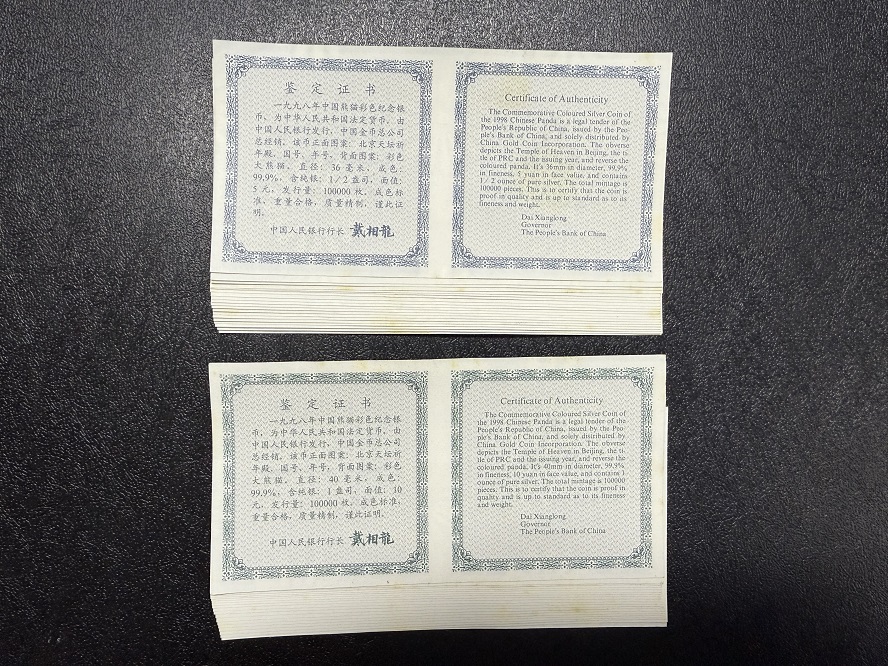 鉴定证书
一九九八年中国熊猫彩色纪念银
币，为中华人民共和国法定货币。由
中国人民银行发行，中国金币总公司
总经销。该币正面图案：北京天坛祈
年殿、国号、年号，背面图案：彩色
大熊猫。直径：36毫米，成色：
99.9%，含纯银：1/2盎司，面值：
5元，发行量：100000枚。成色标
准，重量合格，质量精制，谨此证
明。
中国人民银行行长 戴相龍
Certificate of Authenticity
The Commemorative Coloured Silver Coin of
the 1998 Chinese Panda is a legal tender of the
People's Republic of China, issued by the Peo-
ple's Bank of China, and solely distributed by
China Gold Coin Incorporation. The obverse
depicts the Temple of Heaven in Beijing, the ti-
tle of PRC and the issuing year, and reverse the
coloured panda. It's 36mm in diameter, 99.9%
in fineness, 5 yuan in face value, and contains
1/2 ounce of pure silver. The total mintage is
100000 pieces. This is to certify that the coin is
proof in quality and is up to standard as to its
fineness and weight.
Dai Xianglong
Governor
The People's Bank of China
鉴定证书
一九九八年中国熊猫彩色纪念银
币，为中华人民共和国法定货币。由
中国人民银行发行，中国金币总公司
总经销。该币正面图案：北京天坛祈
年殿、国号、年号，背面图案：彩色
大熊猫。直径：40毫米，成色：
99.9%，含纯银：1盎司，面值：10
元，发行量：100000枚。成色标准，
重量合格，质量精制，谨此证明。
中国人民银行行长 戴相龍
Certificate of Authenticity
The Commemorative Coloured Silver Coin of
the 1998 Chinese Panda is a legal tender of the
People's Republic of China, issued by the Peo-
ple's Bank of China, and solely distributed by
China Gold Coin Incorporation. The obverse
depicts the Temple of Heaven in Beijing, the ti-
tle of PRC and the issuing year, and reverse the
coloured panda. It's 40mm in diameter, 99.9%
in fineness, 10 yuan in face value, and contains 1
ounce of pure silver. The total mintage is 100000
pieces. This is to certify that the coin is proof in
quality and is up to standard as to its fineness
and weight.
Dai Xianglong
Governor
The People's Bank of China